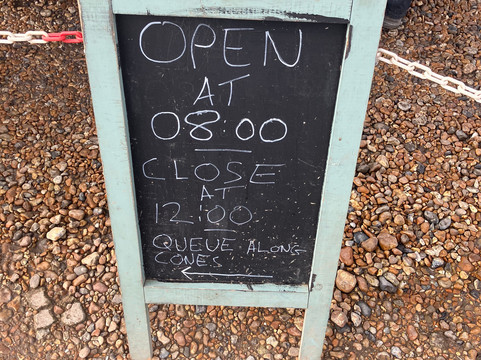 OPEN
AT
08:00
CLOSE
AT
12:00
QUEUE ALONG
CONES